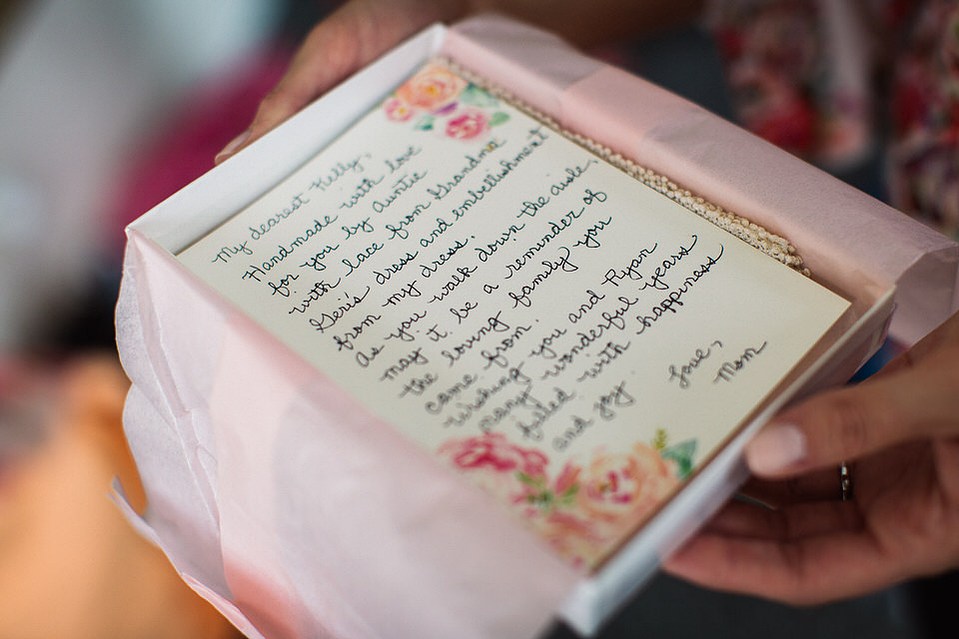 My dearest Kelly,
Handmade with love
for you by Auntie
with lace from Grandma
Geri's dress and embellishment
from my dress.
As you walk down the aisle,
may it be a reminder of
the loving family you
came from.
Wishing you and Ryan
many wonderful years
filled with happiness
and joy
Love,
Mom